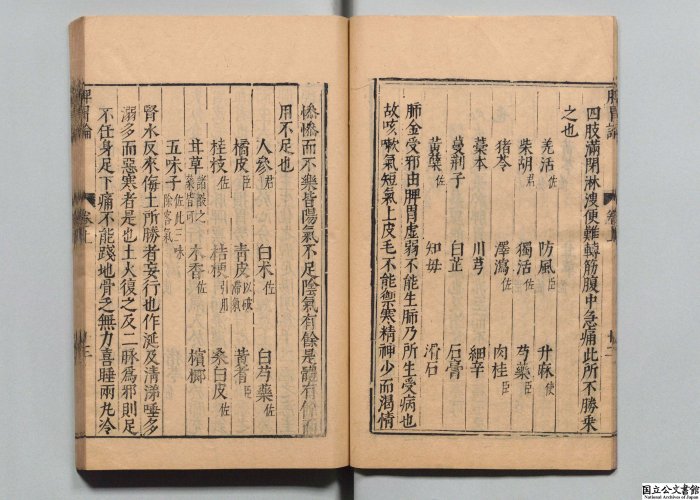 四肢滿閉淋溲便難轉筋腹中急痛此所不勝乘
之也
羗活佐 防風臣 升麻使
柴胡君 獨活佐 芍藥臣
猪苓 澤瀉佐 肉桂臣
藁本 川芎 細辛
蔓荆子 白芷 石膏
黃蘗佐 知母 滑石
肺金受邪由脾胃虛弱不能生肺乃所生受病也
故咳嗽氣短氣上皮毛不能禦寒精神少而渴情
脾胃論 卷上
慘慘而不樂皆陽氣不足陰氣有餘是體有餘而
用不足也
人參君 白朮佐 白芍藥佐
橘皮臣 青皮以破滯氣 黃耆臣
桂枝佐 桔梗引用 桑白皮佐
甘草諸酸之藥皆可 木香佐 檳榔
五味子佐此三味除客氣
腎水反來侮土所勝者妄行也作涎及清涕唾多
溺多而惡寒者是也土火復之及二脉爲邪則足
不任身足下痛不能踐地骨乏無力喜睡兩丸冷
脾胃論 卷上
国立公文書館
National Archives of Japan